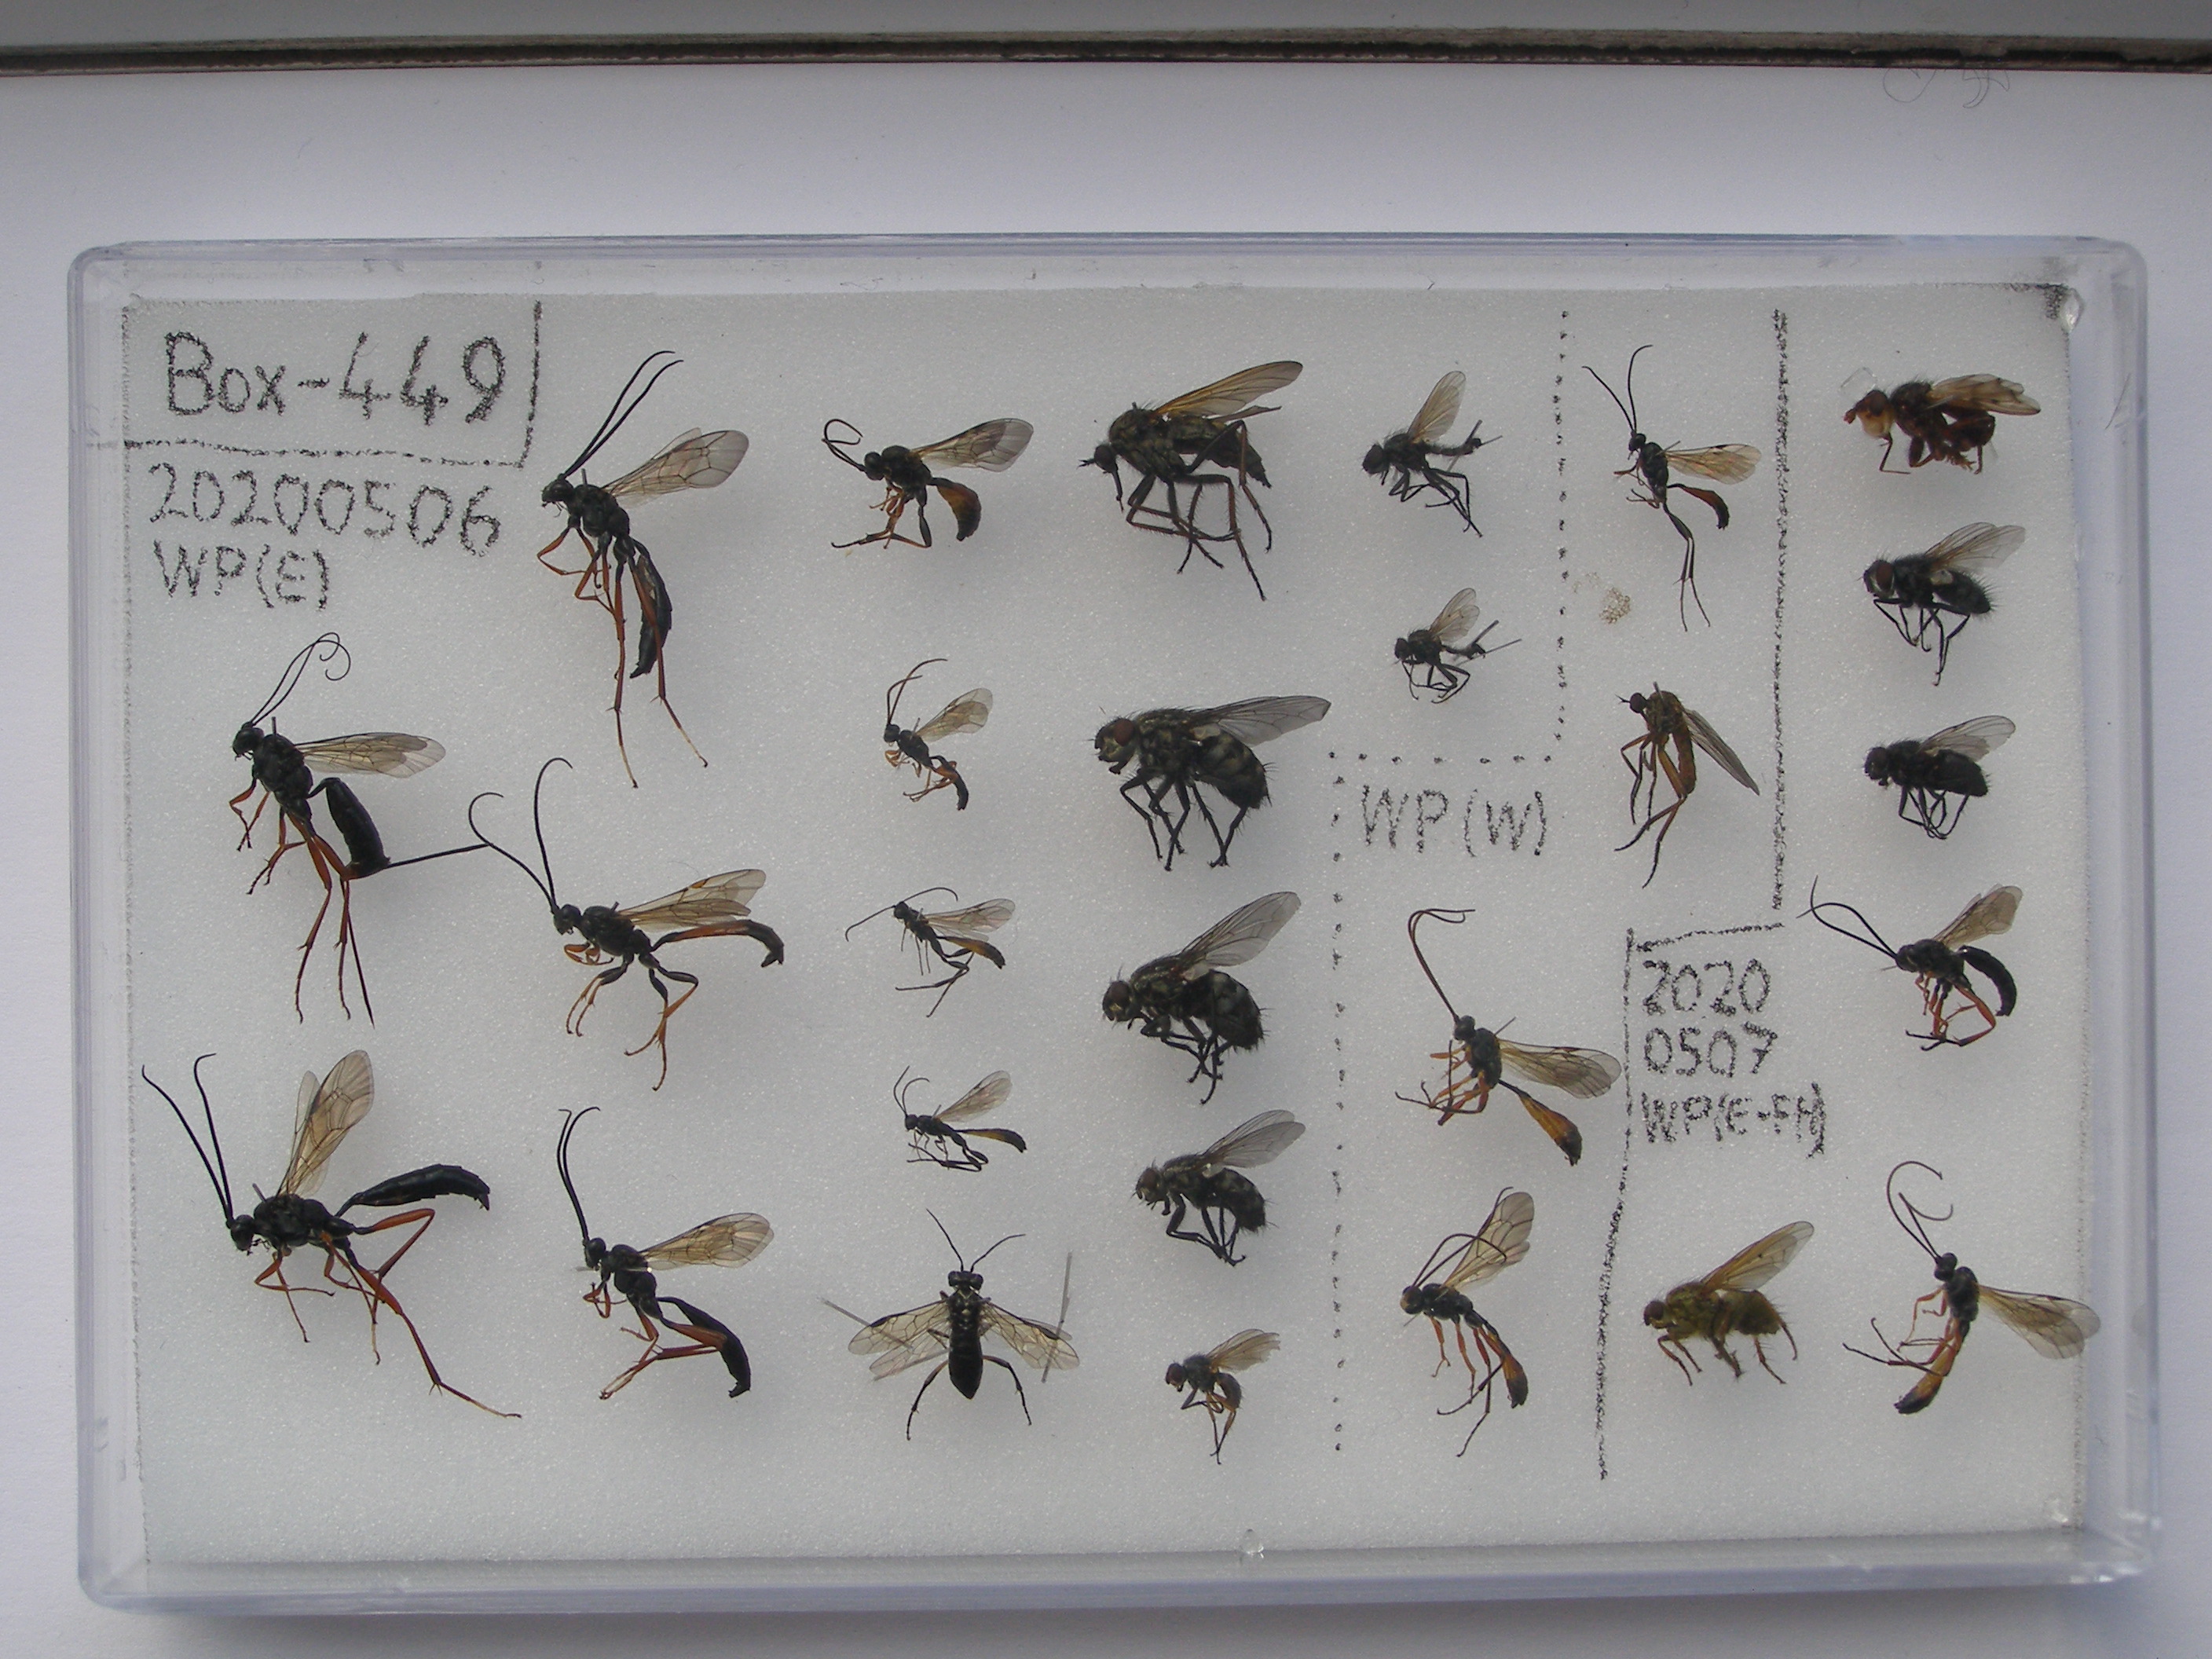 Box-449
20200506
WP(E)
WP(W)
2020
0507
WP(E-FH)